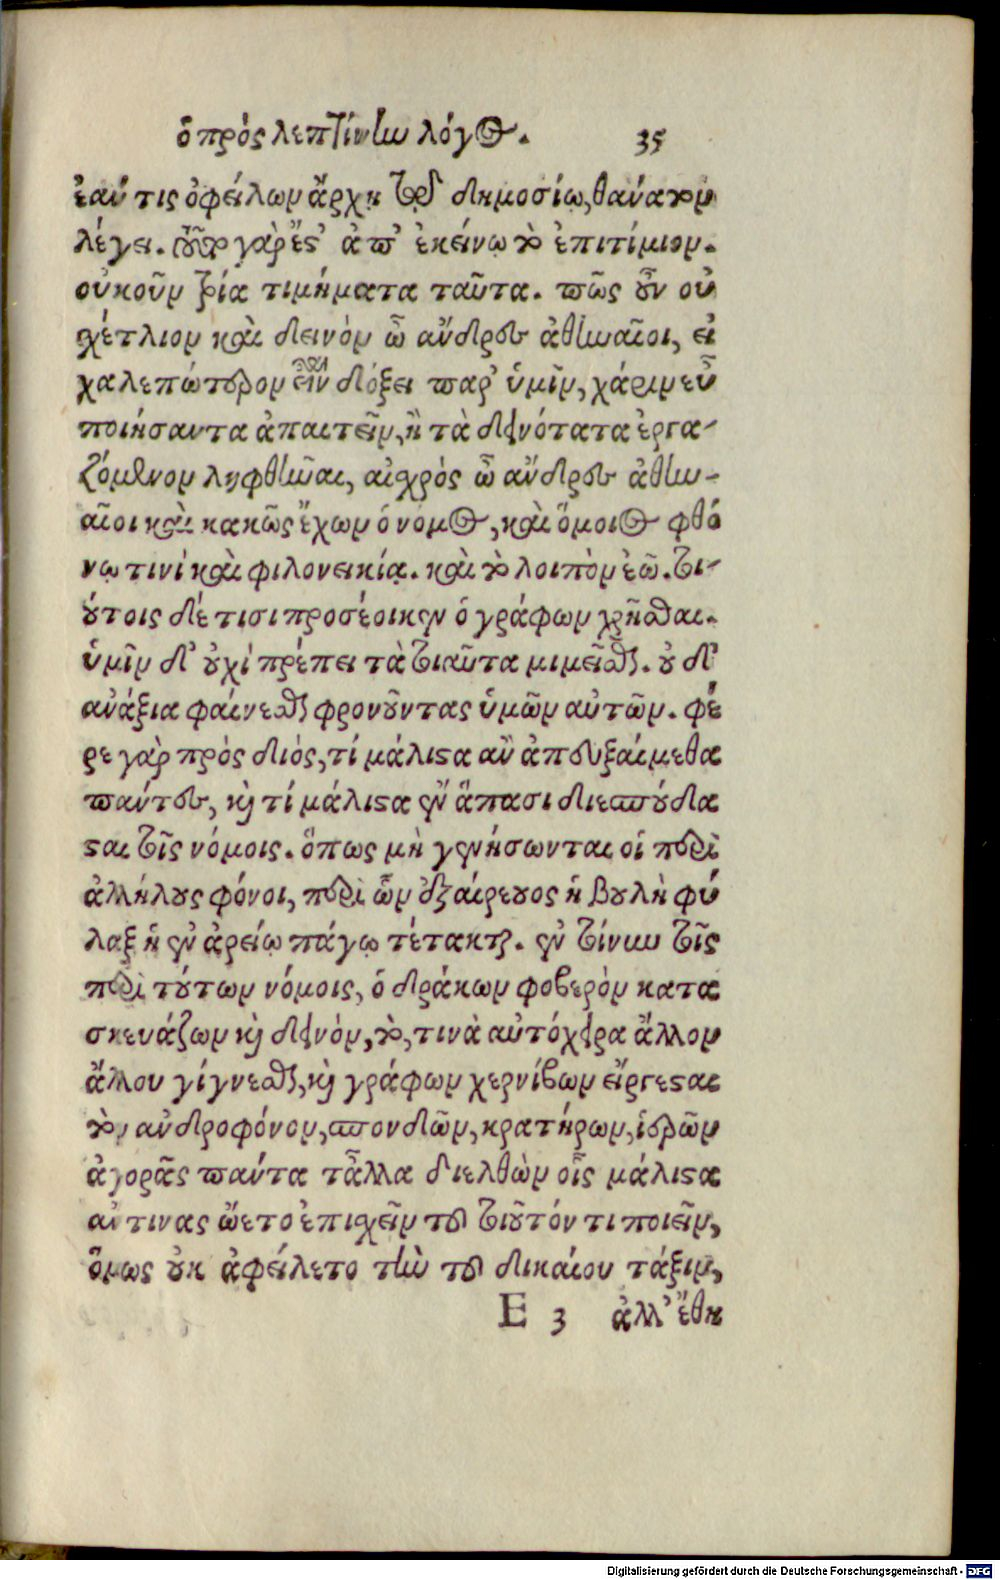 ὁ πρὸς λεπτίνην λόγος. 35
ἐάν τις ὀφείλων ἄρχῃ τῷ δημοσίῳ, θάνατον
λέγει. τοῦτο γάρ ἐστ' ἀπ' ἐκείνῳ τὸ ἐπιτίμιον.
οὐκοῦν τρία τιμήματα ταῦτα. πῶς οὖν οὐ
σχέτλιον καὶ δεινὸν ὦ ἄνδρες ἀθηναῖοι, εἰ
χαλεπώτερον εἶναι δόξει παρ' ὑμῖν, χάριν εὖ
ποιήσαντα ἀπαιτεῖν, ἢ τὰ δεινότατα ἐργα-
ζόμενον ληφθῆναι, αἰσχρὸς ὦ ἄνδρες ἀθην-
αῖοι καὶ κακῶς ἔχων ὁ νόμος, καὶ ὅμοιος φθό
νῳ τινὶ καὶ φιλονεικίᾳ. καὶ τὸ λοιπὸν ἐῶ. τοι-
ούτοις δέ τισι προσέοικεν ὁ γράφων χρῆσθαι.
ὑμῖν δ' οὐχὶ πρέπει τὰ τοιαῦτα μιμεῖσθαι. οὐ δ'
ἀνάξια φαίνεσθαι φρονοῦντας ὑμῶν αὐτῶν. φέ
ρε γὰρ πρὸς διὸς, τί μάλιστα ἂν ἀπευξαίμεθα
πάντες, καὶ τί μάλιστα ἐν ἅπασι διεσπούδα
σται τοῖς νόμοις. ὅπως μὴ γενήσωνται οἱ περὶ
ἀλλήλους φόνοι, περὶ ὧν ἐξαίρετος ἡ βουλὴ φύ
λαξ ἡ ἐν ἀρείῳ πάγῳ τέτακται. ἐν τοίνυν τοῖς
περὶ τούτων νόμοις, ὁ δράκων φοβερὸν κατα
σκευάζων καὶ δεινὸν, τὸ, τινὰ αὐτόχειρα ἄλλον
ἄλλου γίγνεσθαι, καὶ γράφων χερνίβων εἴργεσται
τὸν ἀνδροφόνον, σπονδῶν, κρατήρων, ἱερῶν
ἀγορᾶς πάντα τἄλλα διελθὼν οἷς μάλιστα
ἄν τινας ᾤετο ἐπισχεῖν τοῦ τοιοῦτόν τι ποιεῖν,
ὅμως οὐκ ἀφείλετο τὴν τοῦ δικαίου τάξιν,
E 3 ἀλλ' ἔθη
Digitalisierung gefördert durch die Deutsche Forschungsgemeinschaft - DFG